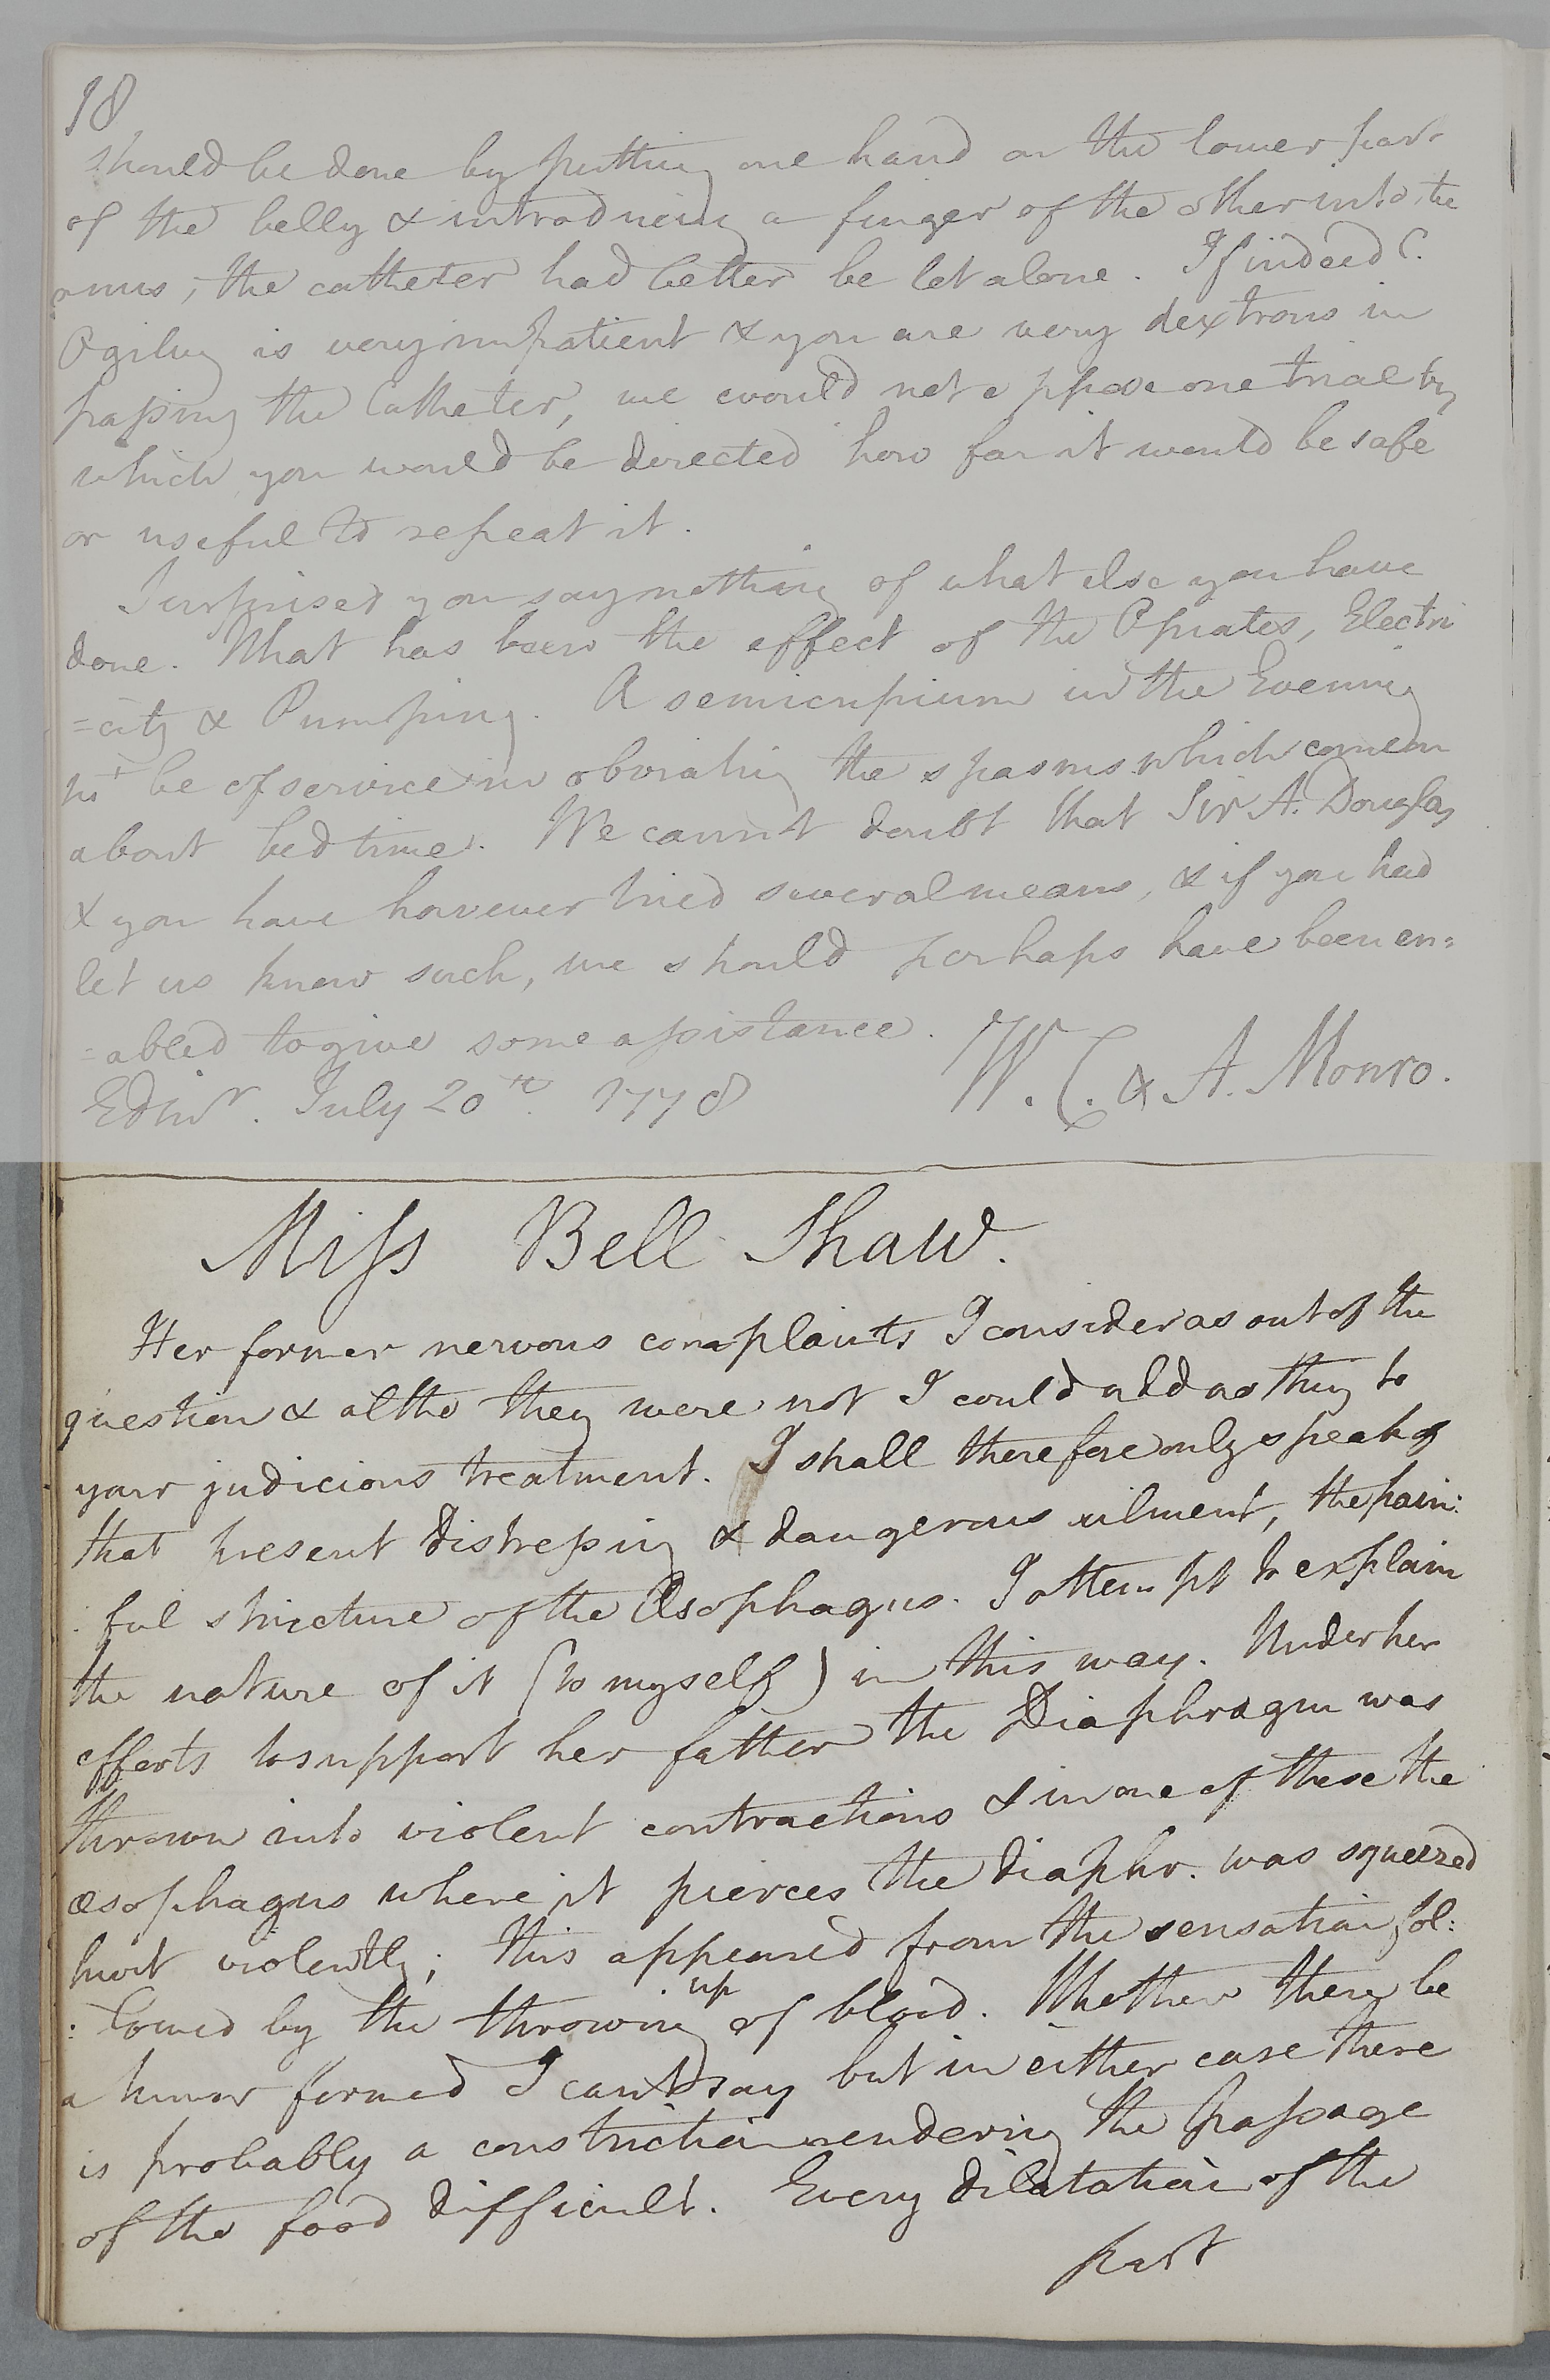 18
should be done by putting one hand on the lower part
of the belly & introducing a finger of the other into the
anus; the catheter had better be let alone. If indeed C.
Ogilvy is very impatient & you are very dextrous in
passing the Catheter, we would not oppose one trial by
which you would be directed how far it would be safe
or useful to repeat it.
Surprised you say nothing of what else you have
done. What has been the effect of the Opiates, Electri
=city & Pumping. A semicupium in the Evening
mt be of service in obviating the spasms which come on
about bed time. We cannot doubt that Sir A. Douglas
& you have however tried several means, & if you had
let us know such, we should perhaps have been en=
=abled to give some assistance.
W. C. & A. Monro.
Edinr. July 20th. 1778
Miss Bell Shaw.
Her former nervous complaints I consider as out of the
question & altho they were not I could add nothing to
your judicious treatment. I shall therefore only speak of
that present distressing & dangerous ailment, the pain:
:ful stricture of the Œsophagus. I attempt to explain
the nature of it (to myself) in this way. Under her
efforts to support her father the Diaphragm was
thrown into violent contractions & in one of these the
œsophagus where it pierces the diaphr. was squeezed
hurt violently; this appeared from the sensation fol:
:lowed by the throwing up of blood. Whether there be
a tumor formed I cannot say but in either case there
is probably a constriction rendering the passage
of the food difficult. Every dilatation of the
part